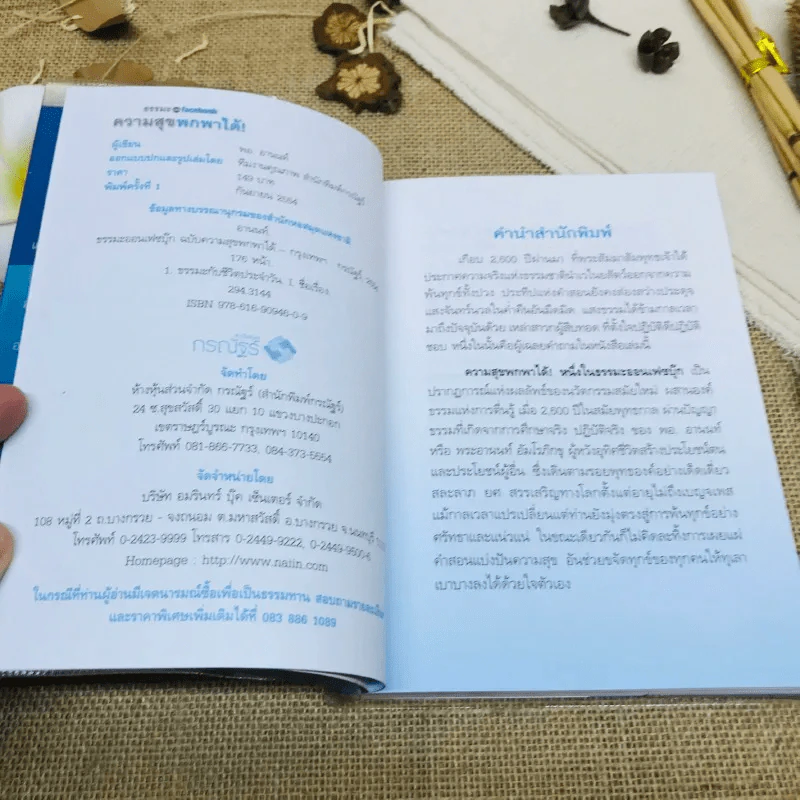 ธรรมะ on facebook
ความสุขพกพาได้!
ผู้เขียน พอ. อานนท์
ออกแบบปกและรูปเล่มโดย ทีมงานคุณภาพ สำนักพิมพ์กรณัฐร์
ราคา 149 บาท
พิมพ์ครั้งที่ 1 กันยายน 2554
ข้อมูลทางบรรณานุกรมของสำนักหอสมุดแห่งชาติ
อานนท์.
ธรรมะออนเฟซบุ๊ก ฉบับความสุขพกพาได้ -- กรุงเทพฯ กรณัฐร์, 2554
176 หน้า
1. ธรรมะกับชีวิตประจำวัน. I. ชื่อเรื่อง
294.3144
ISBN 978-616-90946-0-9
กรณัฐร์
จัดทำโดย
ห้างหุ้นส่วนจำกัด กรณัฐร์ (สำนักพิมพ์กรณัฐร์)
24 ซ.สุขสวัสดิ์ 30 แยก 10 แขวงบางปะกอก
เขตราษฎร์บูรณะ กรุงเทพฯ 10140
โทรศัพท์ 081-866-7733, 084-373-5554
จัดจำหน่ายโดย
บริษัท อมรินทร์ บุ๊ค เซ็นเตอร์ จำกัด
108 หมู่ที่ 2 ถ.บางกรวย - จงถนอม ต.มหาสวัสดิ์ อ.บางกรวย จ.นนทบุรี
โทรศัพท์ 0-2423-9999 โทรสาร 0-2449-9222, 0-2449-9500-6
Homepage : http://www.naiin.com
ในกรณีที่ท่านผู้อ่านมีเจตนารมณ์ซื้อเพื่อเป็นธรรมทาน สอบถามรายละเอียด
และราคาพิเศษเพิ่มเติมได้ที่ 083 886 1089
คำนำสำนักพิมพ์
เกือบ 2,600 ปีผ่านมา ที่พระสัมมาสัมพุทธเจ้าได้
ประกาศความจริงแห่งธรรมชาตินำเวไนยสัตว์ออกจากความ
พ้นทุกข์ทั้งปวง ประทีปแห่งคำสอนยังคงส่องสว่างประดุจ
แสงจันทร์นวลในค่ำคืนอันมืดมิด แสงธรรมได้ข้ามกาลเวลา
มาถึงปัจจุบันด้วย เหล่าสาวกผู้สืบทอด ที่ตั้งใจปฏิบัติดีปฏิบัติ
ชอบ หนึ่งในนั้นคือผู้เฉลยคำถามในหนังสือเล่มนี้
ความสุขพกพาได้! หนึ่งในธรรมะออนเฟซบุ๊ก เป็น
ปรากฏการณ์แห่งผลลัพธ์ของนวัตกรรมสมัยใหม่ ผสานองค์
ธรรมแห่งการตื่นรู้ เมื่อ 2,600 ปีในสมัยพุทธกาล ผ่านปัญญา
ธรรมที่เกิดจากการศึกษาจริง ปฏิบัติจริง ของ พอ. อานนท์
หรือ พระอานนท์ อัมโรภิกขุ ผู้หวังอุทิศชีวิตสร้างประโยชน์ตน
และประโยชน์ผู้อื่น ซึ่งเดินตามรอยพุทธองค์อย่างเด็ดเดี่ยว
สละลาภ ยศ สรรเสริญทางโลกตั้งแต่อายุไม่ถึงเบญจเพส
แม้กาลเวลาแปรเปลี่ยนแต่ท่านยังมุ่งตรงสู่การพ้นทุกข์อย่าง
ศรัทธาและแน่วแน่ ในขณะเดียวกันก็ไม่คิดละทิ้งการเผยแผ่
คำสอนแบ่งปันความสุข อันช่วยขจัดทุกข์ของทุกคนให้ทุเลา
เบาบางลงได้ด้วยใจตัวเอง